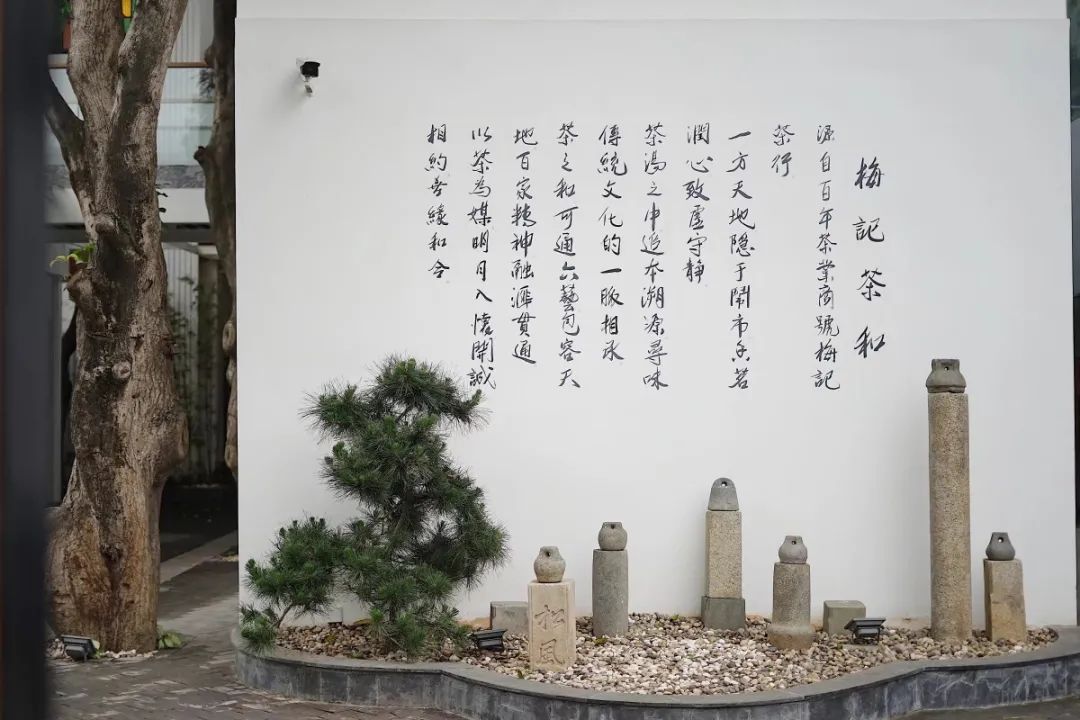 梅記茶和
源自百年茶業商號梅記
茶行
一方天地隱于鬧市茗
潤心致虛守靜
茶湯之中追本溯源尋味
傳統文化的一脈相承
茶之和可通六藝包容天
地百家精神融滙貫通
以茶為媒明月入懷開誠
相約善緩和令
松風